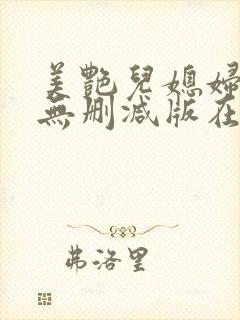 美艷兒媳婦
無刪減版在
弗洛里